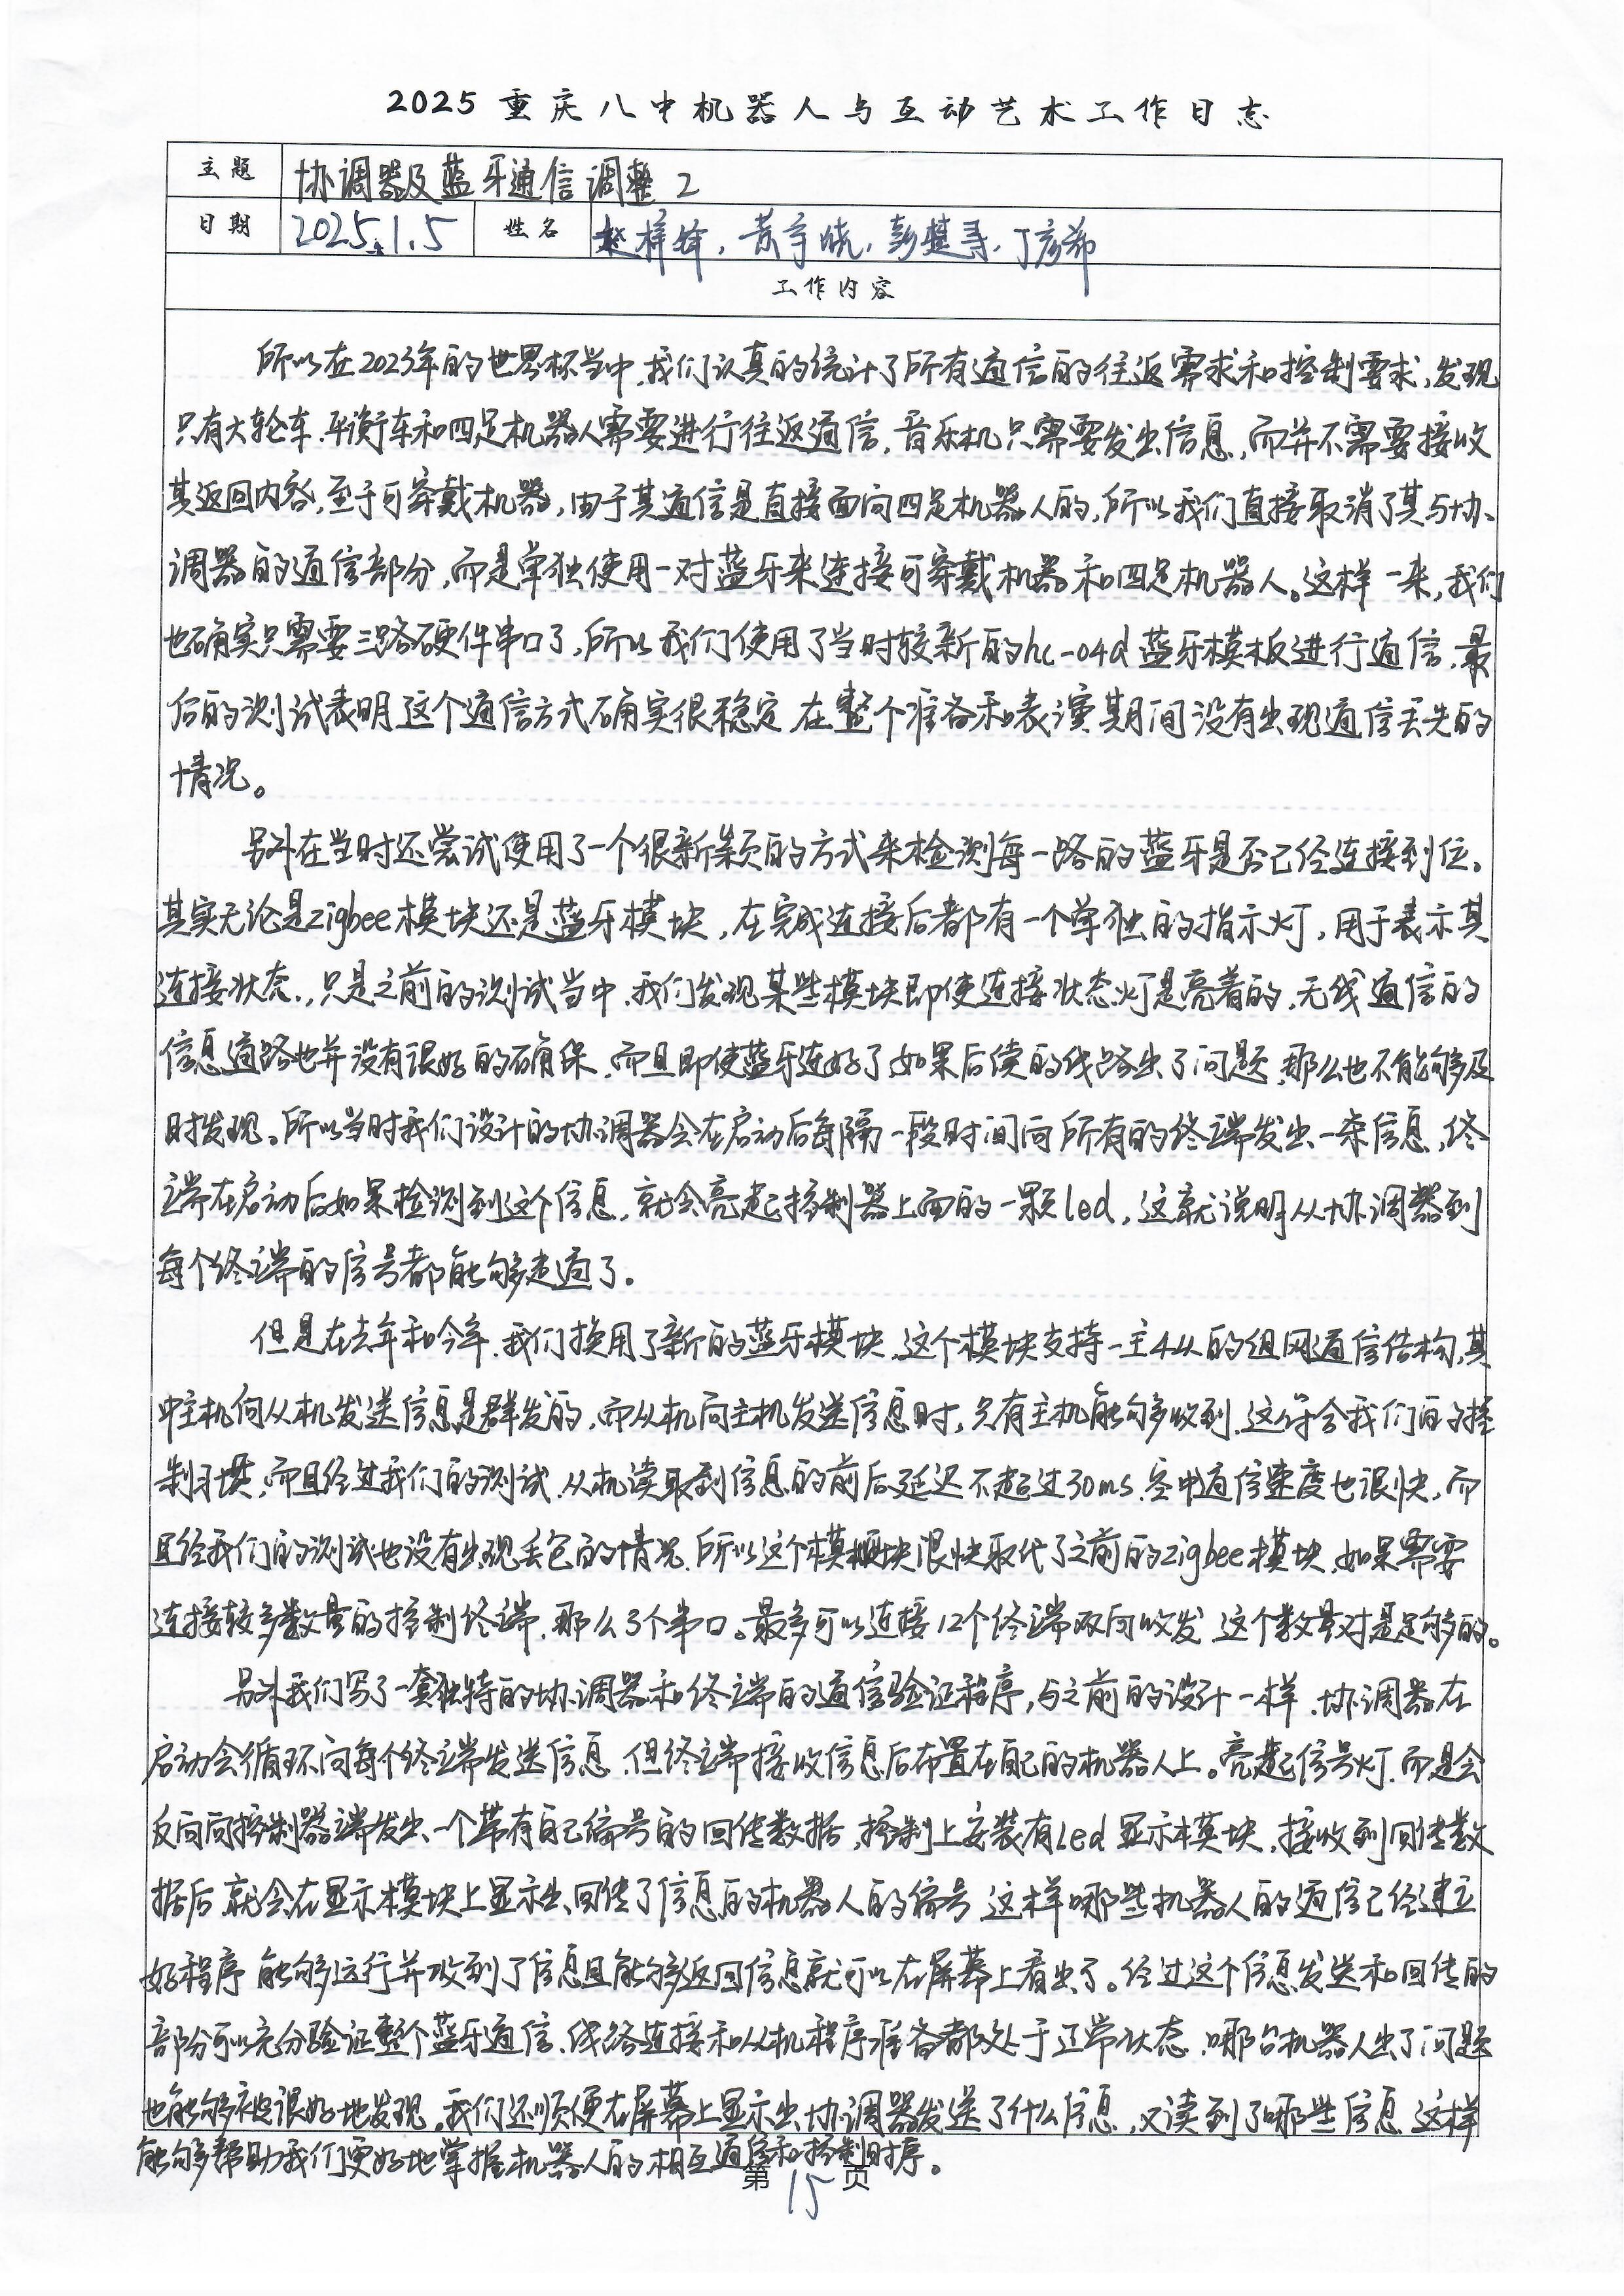 2025重庆八中机器人与互动艺术工作日志
主题 协调器及蓝牙通信调整2
日期 2025.1.5 姓名 赵梓烽,黄宇晓,彭楚寻,丁彦希
工作内容
所以在2023年的世界杯当中,我们认真的统计了所有通信的往返需求和控制要求,发现
只有大轮车、平衡车和四足机器人需要进行往返通信,音乐机只需要发出信息,而并不需要接收
其返回内容,至于可穿戴机器,由于其通信是直接面向四足机器人的,所以我们直接取消了其与协
调器的通信部分,而是单独使用一对蓝牙来连接可穿戴机器和四足机器人。这样一来,我们
也确实只需要三路硬件串口了,所以我们使用了当时较新的hc-04d蓝牙模板进行通信,最
后的测试表明这个通信方式确实很稳定,在整个准备和表演期间没有出现通信丢失的
情况。
另外在当时还尝试使用了一个很新颖的方式来检测每一路的蓝牙是否已经连接到位。
其实无论是zigbee模块还是蓝牙模块,在完成连接后都有一个单独的指示灯,用于表示其
连接状态,只是之前的测试当中,我们发现某些模块即使连接状态灯是亮着的,无线通信的
信息通路也并没有很好的确保,而且即使蓝牙连好了,如果后续的线路出了问题,那么也不能够及
时发现。所以当时我们设计的协调器会在启动后每隔一段时间向所有的终端发出一条信息,终
端在启动后如果检测到这个信息,就会亮起控制器上面的一颗led,这就说明从协调器到
每个终端的信号都能够走通了.
但是在去年和今年,我们换用了新的蓝牙模块,这个模块支持一主4从的组网通信结构,其
中主机向从机发送信息是群发的,而从机向主机发送信息时,只有主机能够收到,这符合我们的控
制习惯,而且经过我们的测试,从机读取到信息的前后延迟不超过30ms,空中通信速度也很快,而
且经我们的测试也没有出现丢包的情况,所以这个模块很快取代了之前的zigbee模块,如果需要
连接较多数量的控制终端,那么3个串口。最多可以连接12个终端双向收发,这个数量对是足够的。
另外我们写了一套独特的协调器和终端的通信验证程序,与之前的设计一样,协调器在
启动会循环向每个终端发送信息,但终端接收信息后布置在自己的机器人上。亮起信号灯,而是会
反向向控制器端发出一个带有自己编号的回传数据,控制上安装有led显示模块,接收到回传数
据后,就会在显示模块上显示出回传了信息的机器人的编号,这样哪些机器人的通信已经建立
好程序能够运行并收到了信息且能够返回信息就可以在屏幕上看出了。经过这个信息发送和回传的
部分可以充分验证整个蓝牙通信、线路连接和从机程序准备都处于正常状态,哪台机器人出了问题
也能够被很好地发现。我们还顺便在屏幕上显示出协调器发送了什么信息,又读到了哪些信息,这样
能够帮助我们更好地掌握机器人的相互通信和控制时序。
第15页